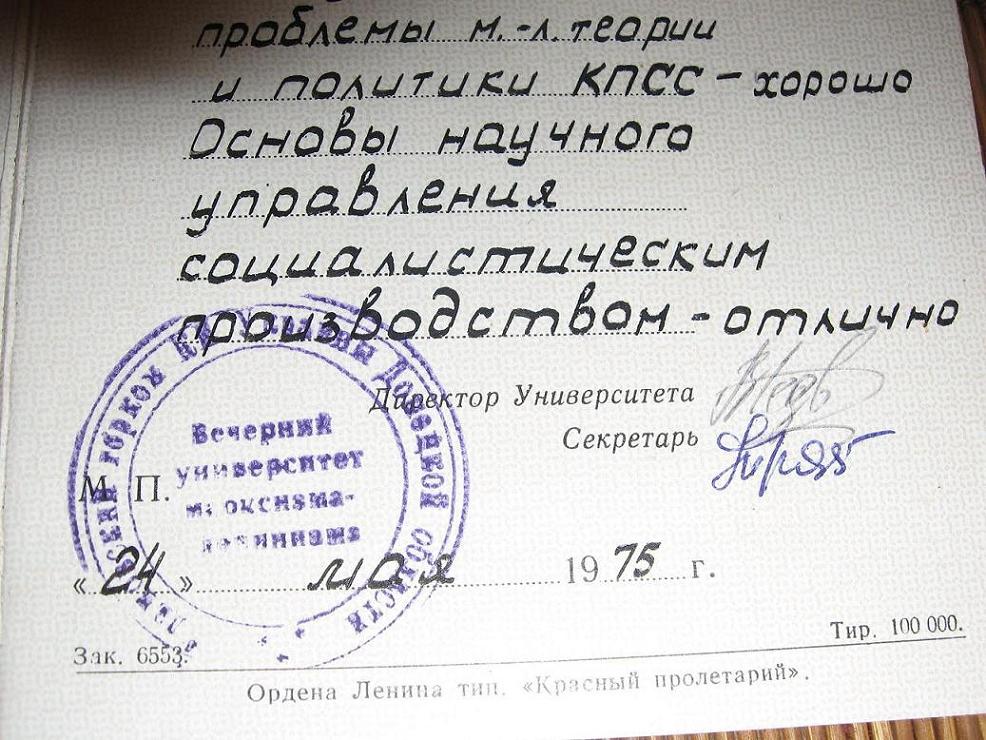 проблемы м.-л. теории
и политики КПСС - хорошо
Основы научного
управления
социалистическим
производством - отлично
Директор Университета
Секретарь
М. П.
горком КП Украины Донецкой области
Вечерний
университет
марксизма-
ленинизма
« 24 » мая 1975 г.
Зак. 6553.
Тир. 100 000.
Ордена Ленина тип. «Красный пролетарий».